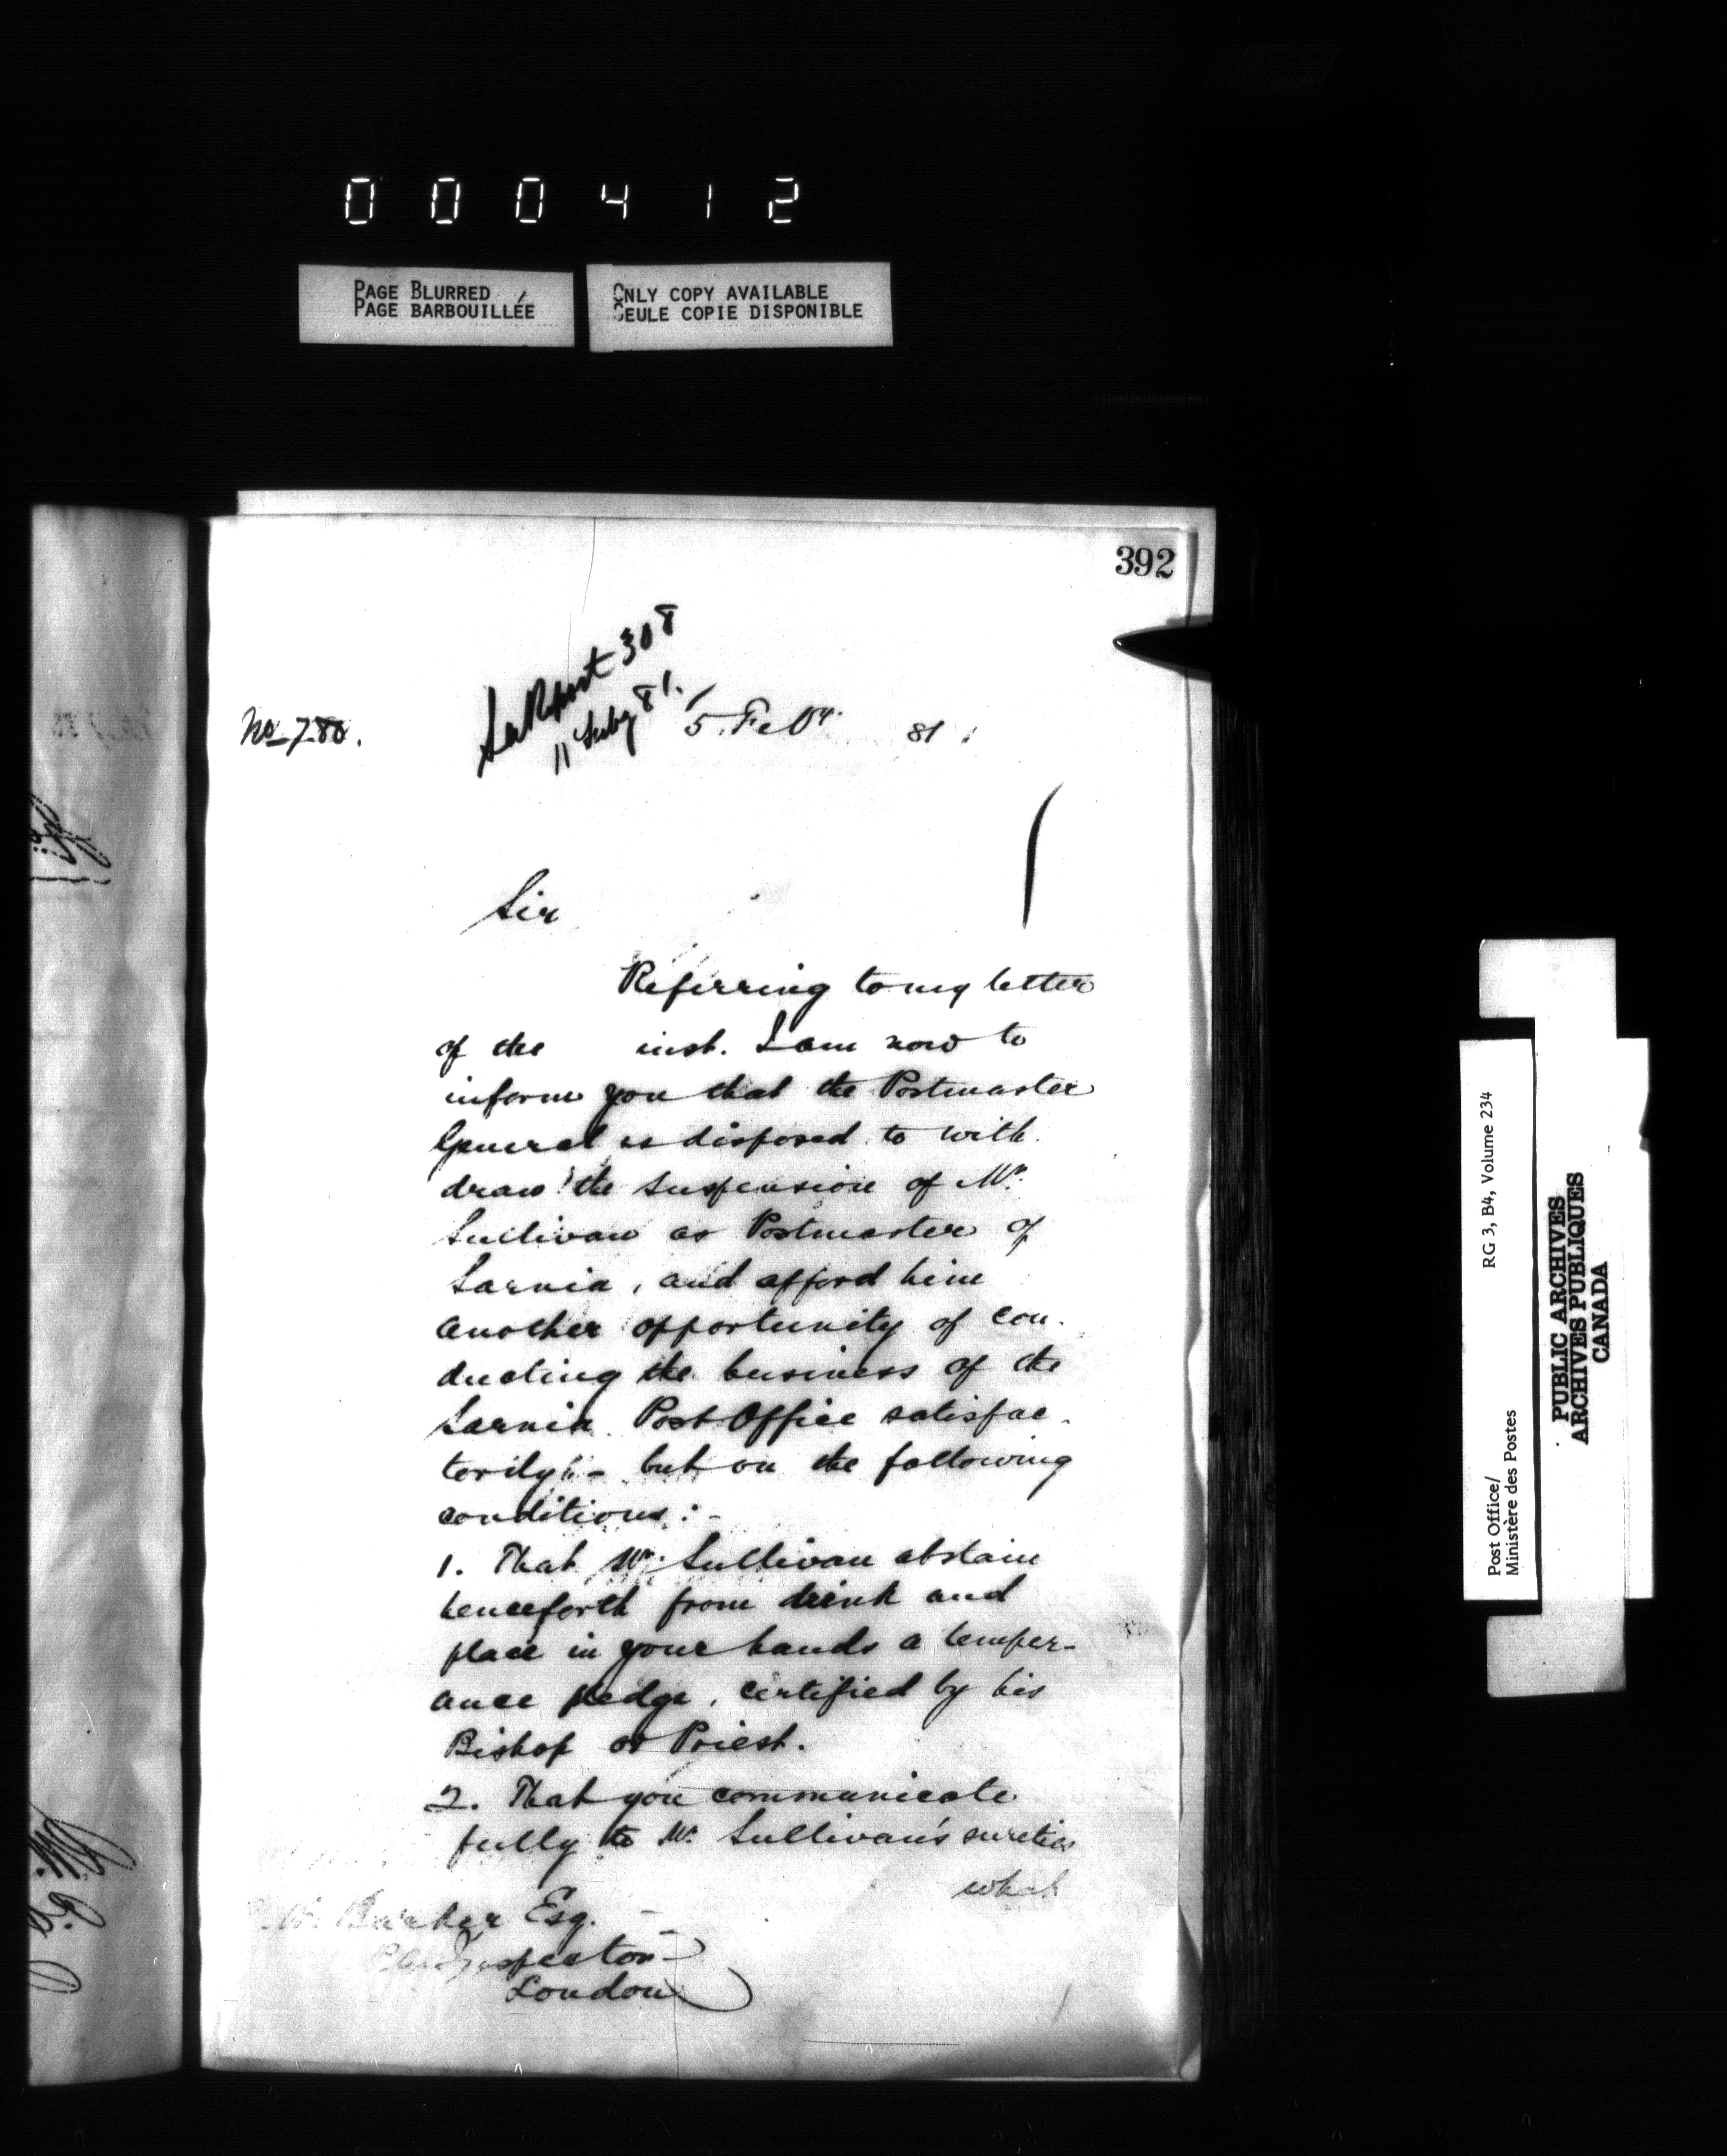 000412
PAGE BLURRED
PAGE BARBOUILLÉE
ONLY COPY AVAILABLE
SEULE COPIE DISPONIBLE
392
See Report 308
11 Feby 81.
No 780.
5. Feby. 81.
Sir
Referring to my letter
of the inst. I am now to
inform you that the Postmaster
General is disposed to with
draw the suspension of Mr.
Sullivan as Postmaster of
Sarnia, and afford him
another opportunity of con-
ducting the business of the
Sarnia Post Office satisfac-
torily;- but on the following
conditions:-
1. That Mr. Sullivan abstain
henceforth from drink and
place in your hands a temper-
ance pledge, certified by his
Bishop or Priest.
2. That you communicate
fully to Mr. Sullivan's sureties
what
Barker Esq.
Inspector
London
Post Office/
Ministère des Postes
RG 3, B4, Volume 234
PUBLIC ARCHIVES
ARCHIVES PUBLIQUES
CANADA